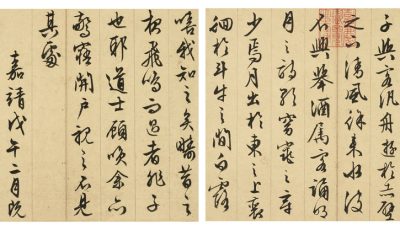 子與客汎舟遊於赤壁
之下清風徐來水波
不興舉酒屬客誦明
月之詩歌窈窕之章
少焉月出於東之上裵
徊於斗牛之間白露
嘻我知之矣疇昔之
夜飛鳴而過者非子
也耶道士顧唉余亦
驚寤開戶視之不見
其處
嘉靖戊午二月既